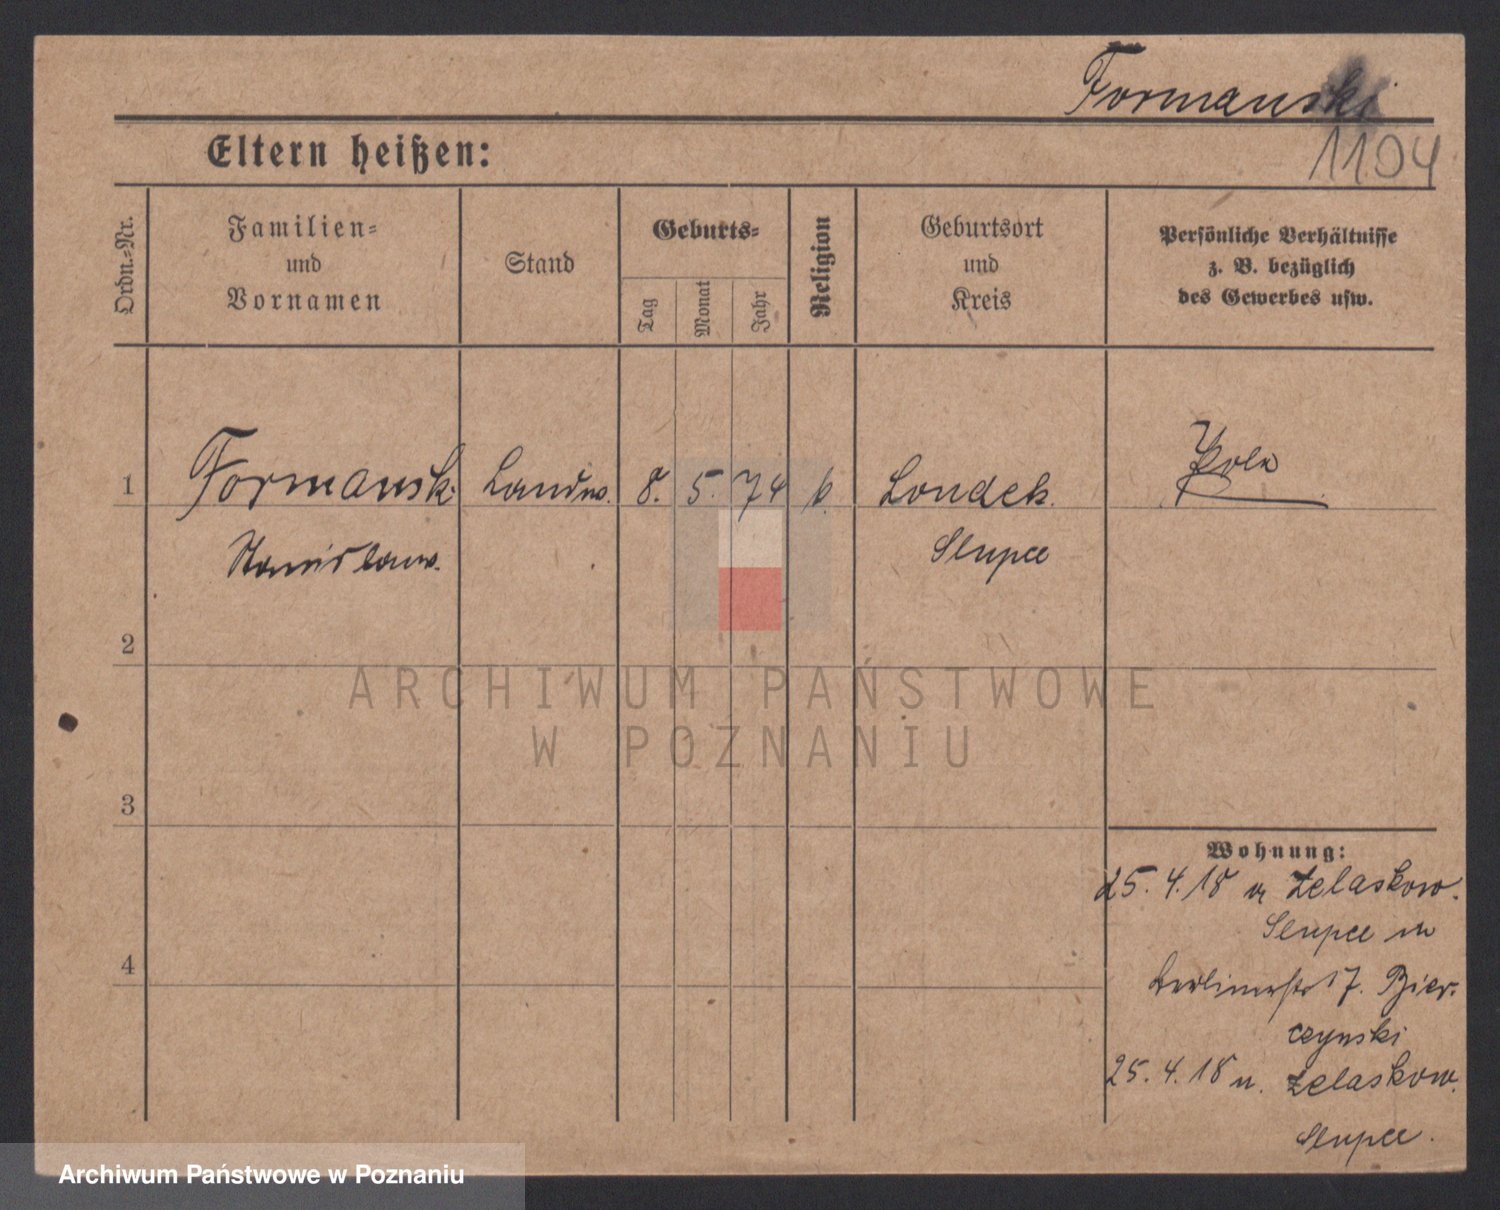 Formanski
1104
Eltern heißen:
Ordn.-Nr.
Familien-
und
Vornamen
Stand
Geburts-
Tag
Monat
Jahr
Religion
Geburtsort
und
Kreis
Persönliche Verhältnisse
z. B. bezüglich
des Gewerbes usw.
1 Formanski Landw. 8. 5. 74 k. Londek. Pole
Stanislaus. Slupce
2
3
4
Wohnung:
25. 4. 18 v Zelaskow.
Slupce in
Berlinerstr 17. Bier-
czynski
25. 4. 18 n. Zelaskow.
Slupce.
ARCHIWUM PAŃSTWOWE
W POZNANIU
Archiwum Państwowe w Poznaniu